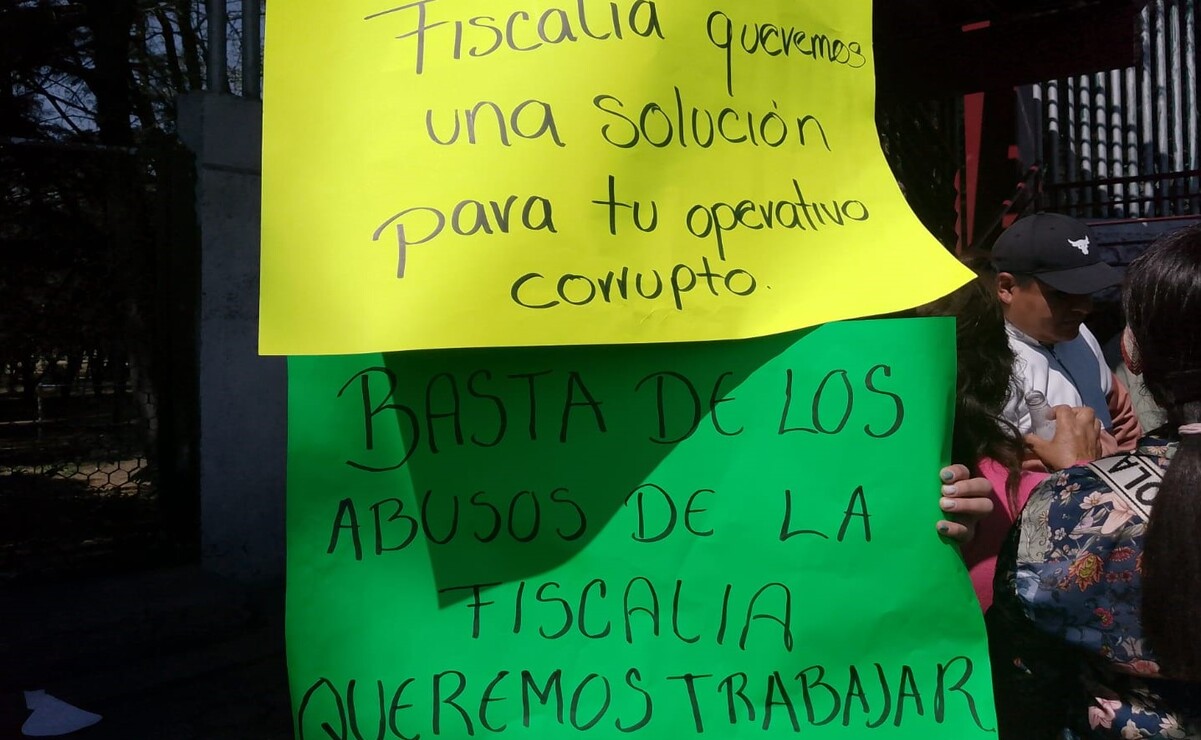 Fiscalía queremos
una solución
para tu operativo
corrupto.
BASTA DE LOS
ABUSOS DE LA
FISCALIA
QUEREMOS TRABAJAR
OLA